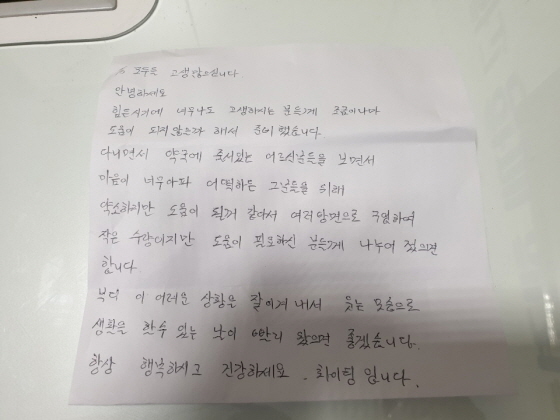 모두들 고생많으십니다
안녕하세요
힘든시기에 너무나도 고생하시는 분들께 조금이나마
도움이 되지않을까 해서 준비했습니다
다니면서 약국에 줄서있는 어르신날들을 보면서
마음이 너무아파 어떡하든 그분들을 위해
약소하지만 도움이 될꺼 같아서 여러방면으로 구입하여
작은 수량이지만 도움이 필요하신 분들께 나누어 줬으면
합니다
부디 이 어려운 상황을 잘이겨내서 웃는 모습으로
생활을 할수 있는 날이 빨리 왔으면 좋겠습니다.
항상 행복하시고 건강하세요. 화이팅 입니다.